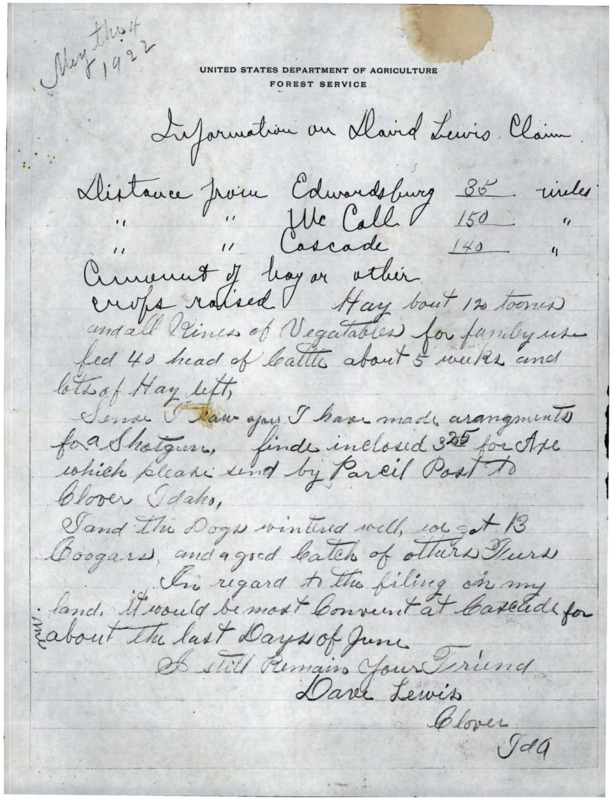 May the 4
1922
UNITED STATES DEPARTMENT OF AGRICULTURE
FOREST SERVICE
Information on David Lewis Claim
Distance from Edwardsburg 35 miles
" " Mc Call 150 "
" " Cascade 140 "
Amount of hay or other
crops raised Hay bout 12 tonns
and all Kines of Vegatables for family use
fed 40 head of Cattle about 5 weeks and
lots of Hay left,
Sence I saw you I have made arangments
for a Shotgun, finde inclosed 3.25 for Axe
which please send by Parcil Post to
Clover Idaho,
I and the Dogs wintered well, we got 13
Coogars, and a good Catch of others Furs
In regard to the filing on my
land, it would be most Convent at Cascade for
about the last Days of June
I still Remain Your Friend
Dave Lewis
Clover
Ida